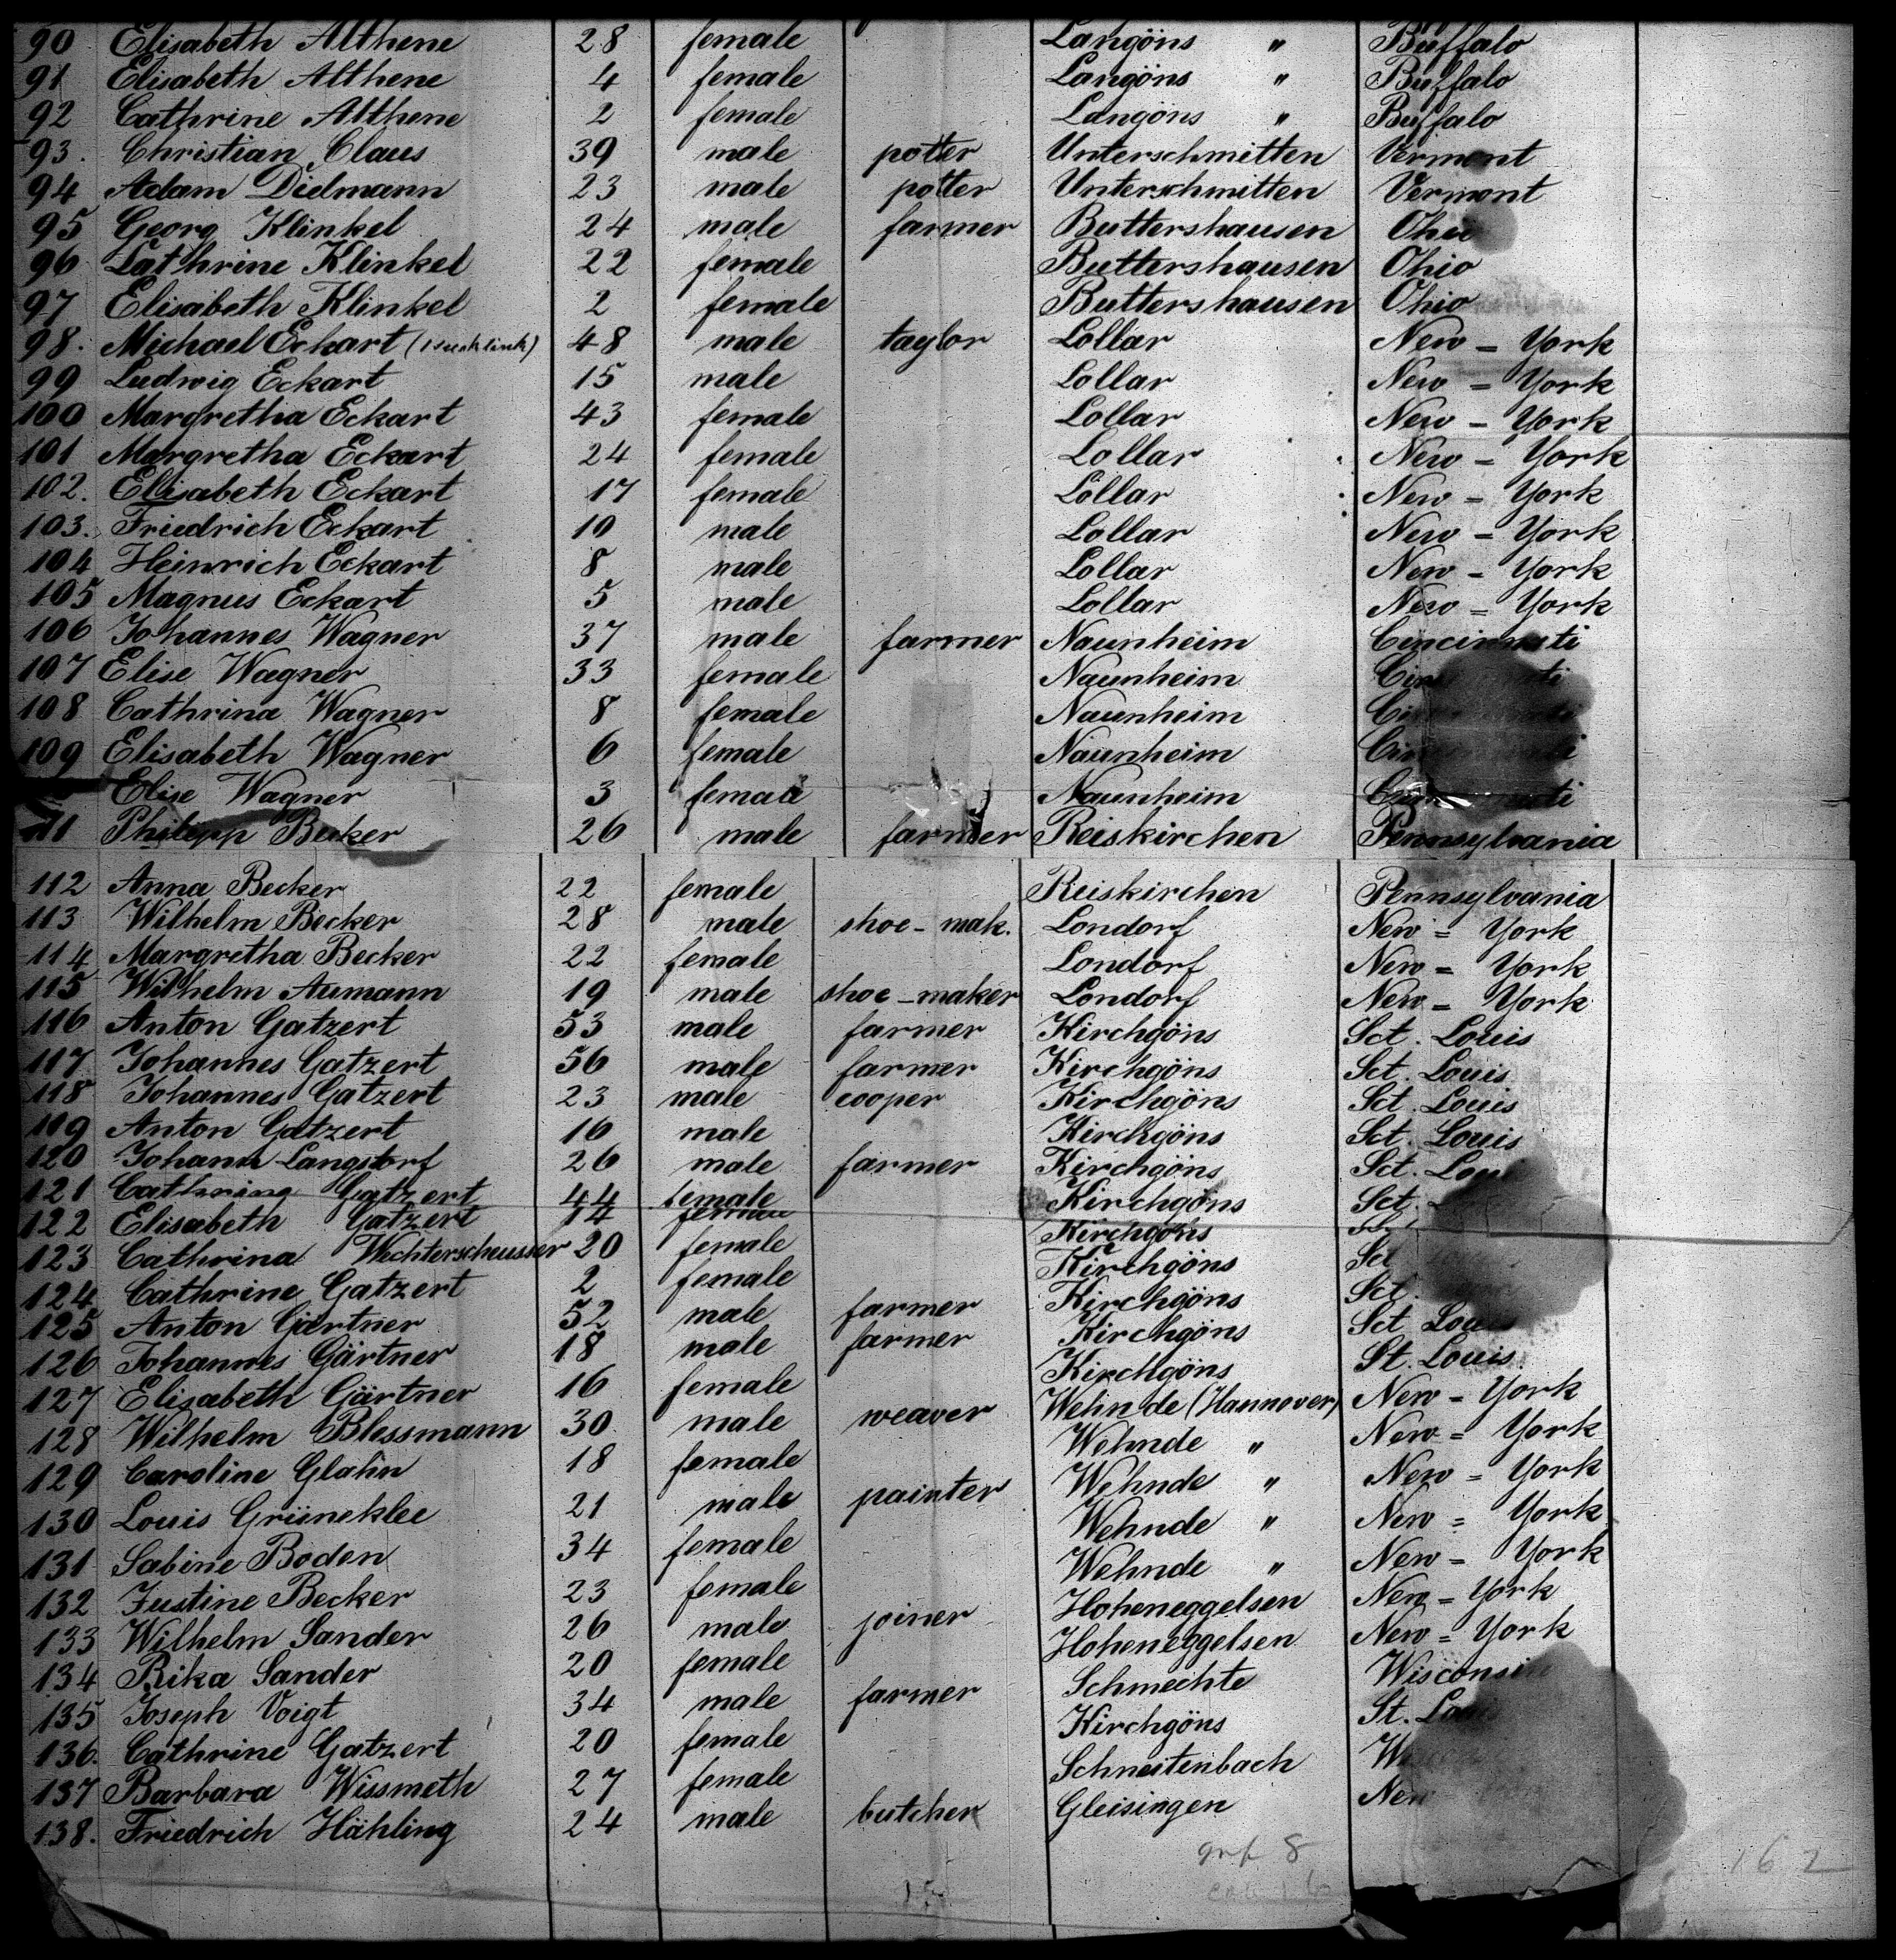 90 Elisabeth Althene 28 female Langöns " Buffalo
91 Elisabeth Althene 4 female Langöns " Buffalo
92 Cathrine Althene 2 female Langöns " Buffalo
93. Christian Claus 39 male potter Unterschmitten Vermont
94 Adam Dielmann 23 male potter Unterschmitten Vermont
95 Georg Klinkel 24 male farmer Buttershausen Ohio
96 Cathrine Klinkel 22 female Buttershausen Ohio
97 Elisabeth Klinkel 2 female Buttershausen Ohio
98. Michael Eckart 48 male taylor Lollar New = York
99 Ludwig Eckart 15 male Lollar New = York
100 Margretha Eckart 43 female Lollar New = York
101 Margretha Eckart 24 female Lollar New = York
102. Elisabeth Eckart 17 female Lollar New = York
103. Friedrich Eckart 10 male Lollar New = York
104 Heinrich Eckart 8 male Lollar New = York
105 Magnus Eckart 5 male Lollar New = York
106 Johannes Wagner 37 male farmer Naunheim Cincinnati
107 Elise Wagner 33 female Naunheim
108 Cathrina Wagner 8 female Naunheim
109 Elisabeth Wagner 6 female Naunheim
Elise Wagner 3 female Naunheim
111 Philipp Becker 26 male farmer Reiskirchen Pennsylvania
112 Anna Becker 22 female Reiskirchen Pennsylvania
113 Wilhelm Becker 28 male shoe - mak. Londorf New = York
114 Margretha Becker 22 female Londorf New = York
115 Wilhelm Aumann 19 male shoe - maker Londorf New = York
116 Anton Gatzert 53 male farmer Kirchgöns Sct. Louis
117 Johannes Gatzert 56 male farmer Kirchgöns Sct. Louis
118 Johannes Gatzert 23 male cooper Kirchgöns Sct. Louis
119 Anton Gatzert 16 male Kirchgöns Sct. Louis
120 Johann Langstorf 26 male farmer Kirchgöns Sct. Louis
121 Cathrina Gatzert 44 female Kirchgöns Sct.
122 Elisabeth Gatzert 14 female Kirchgöns
123 Cathrina Wechterscheusser 20 female Kirchgöns Sct
124 Cathrine Gatzert 2 female Kirchgöns Sct.
125 Anton Gärtner 52 male farmer Kirchgöns Sct Louis
126 Johannes Gärtner 18 male farmer Kirchgöns St. Louis.
127 Elisabeth Gärtner 16 female Wehnde (Hannover) New = York
128 Wilhelm Blessmann 30 male weaver Wehnde " New = York
129 Caroline Glahn 18 female Wehnde " New = York
130 Louis Grüneklee 21 male painter Wehnde " New = York
131 Sabine Boden 34 female Wehnde " New = York
132 Justine Becker 23 female Hoheneggelsen New = York
133 Wilhelm Sander 26 male joiner Hoheneggelsen New = York
134 Rika Sander 20 female Schmechte Wisconsin
135 Joseph Voigt 34 male farmer Kirchgöns St. Louis
136. Cathrine Gatzert 20 female Schneitenbach
137 Barbara Wissmeth 27 female Gleisingen New
138. Friedrich Hähling 24 male butcher
162